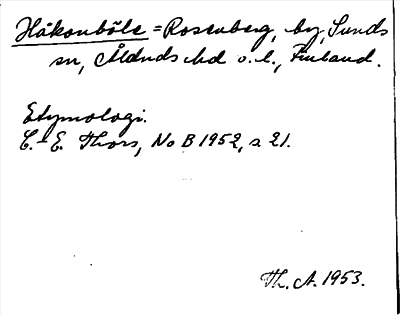 Håkonböle = Rosenberg, by, Sunds
sn, Ålands hd o. l., Finland.
Etymologi.
C.-E. Thors, No B 1952, s 21.
Th. A. 1953.